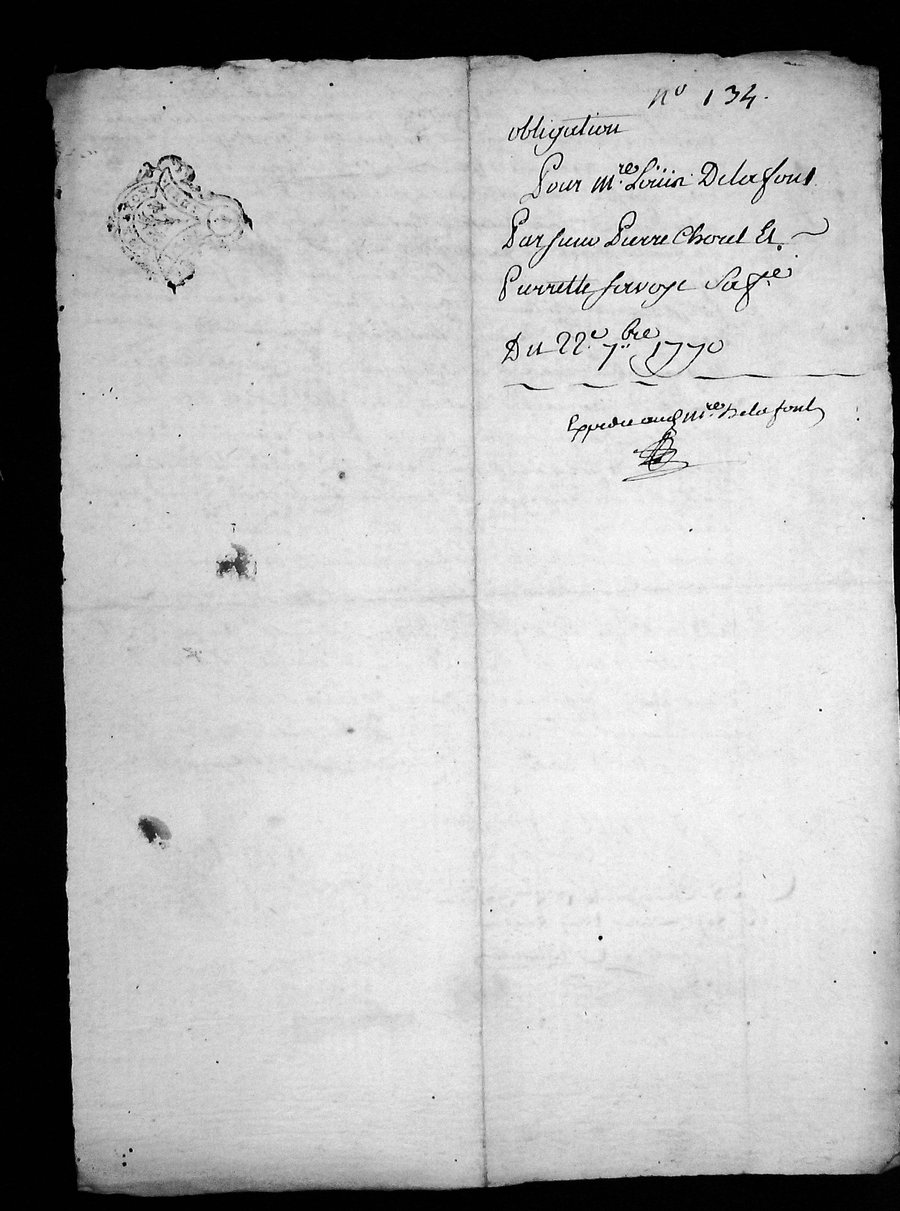 n° 134.
obligation
Pour Mre Loüis Delafont
Par sieur Pierre Choret Et
Pierrette Savoye Sa fe
Du 22e 7bre 1770
Expedié aud Mre Delafont